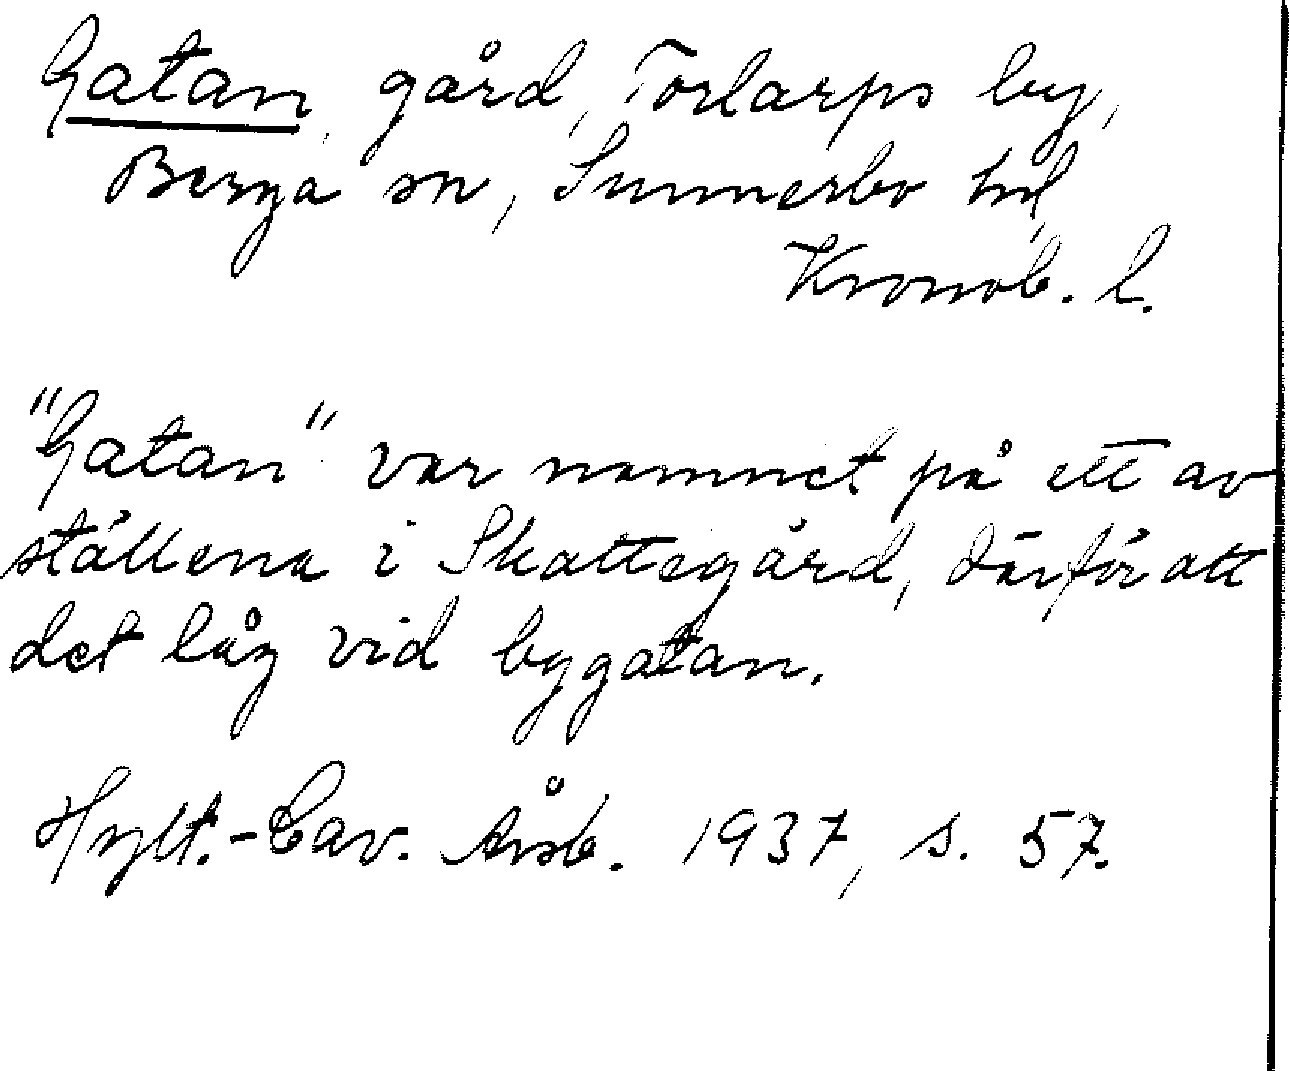 Gatan, gård, Torlarps by,
Berga sn, Sunnerbo hd,
Kronob. l.
"Gatan" var namnet på ett av
ställena i Skattegård, därför att
det låg vid bygatan.
Hylt.-Cav. Årsb. 1937, s. 57.